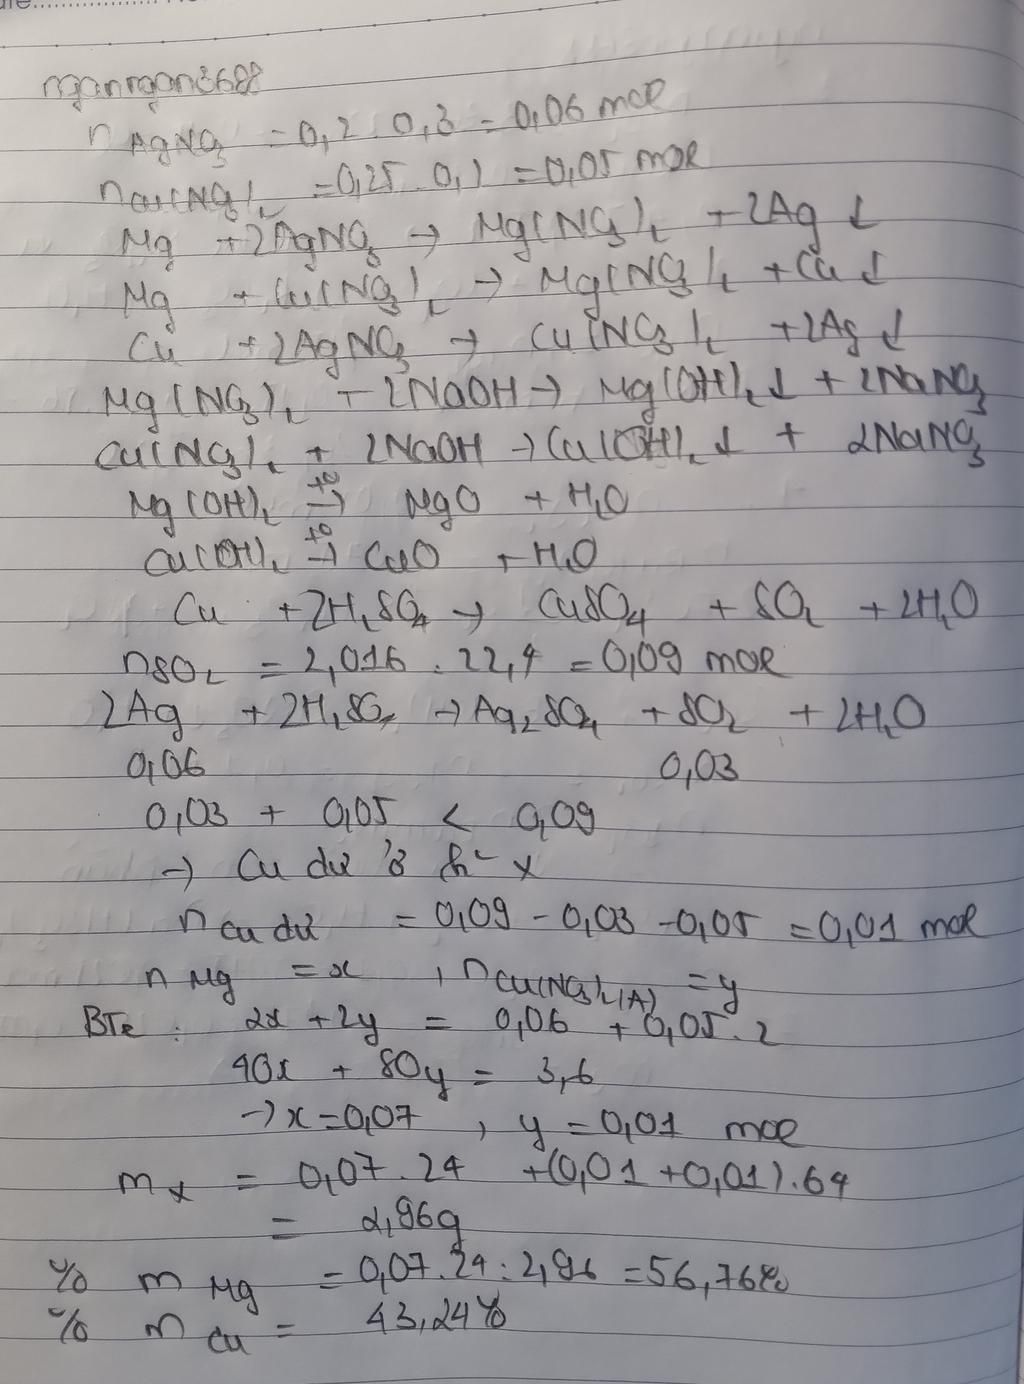 nganngan3688
nAgNO3 = 0,2 . 0,3 = 0,06 mol
nCu(NO3)2 = 0,25 . 0,2 = 0,05 mol
Mg + 2AgNO3 → Mg(NO3)2 + 2Ag ↓
Mg + Cu(NO3)2 → Mg(NO3)2 + Cu ↓
Cu + 2AgNO3 → Cu(NO3)2 + 2Ag ↓
Mg(NO3)2 + 2NaOH → Mg(OH)2 ↓ + 2NaNO3
Cu(NO3)2 + 2NaOH → Cu(OH)2 ↓ + 2NaNO3
Mg(OH)2 →to MgO + H2O
Cu(OH)2 →to CuO + H2O
Cu + 2H2SO4 → CuSO4 + SO2 + 2H2O
nSO2 = 2,016 : 22,4 = 0,09 mol
2Ag + 2H2SO4 → Ag2SO4 + SO2 + 2H2O
0,06 0,03
0,03 + 0,05 < 0,09
→ Cu dư ở h² X
nCu dư = 0,09 - 0,03 - 0,05 = 0,01 mol
nMg = x , nCu(NO3)2(A) = y
BTe : 2x + 2y = 0,06 + 0,05.2
40x + 80y = 3,6
→ x = 0,07 , y = 0,01 mol
mX = 0,07.24 + (0,01 + 0,01).64
= 2,96g
% mMg = 0,07.24 : 2,96 = 56,76%
% mCu = 43,24%